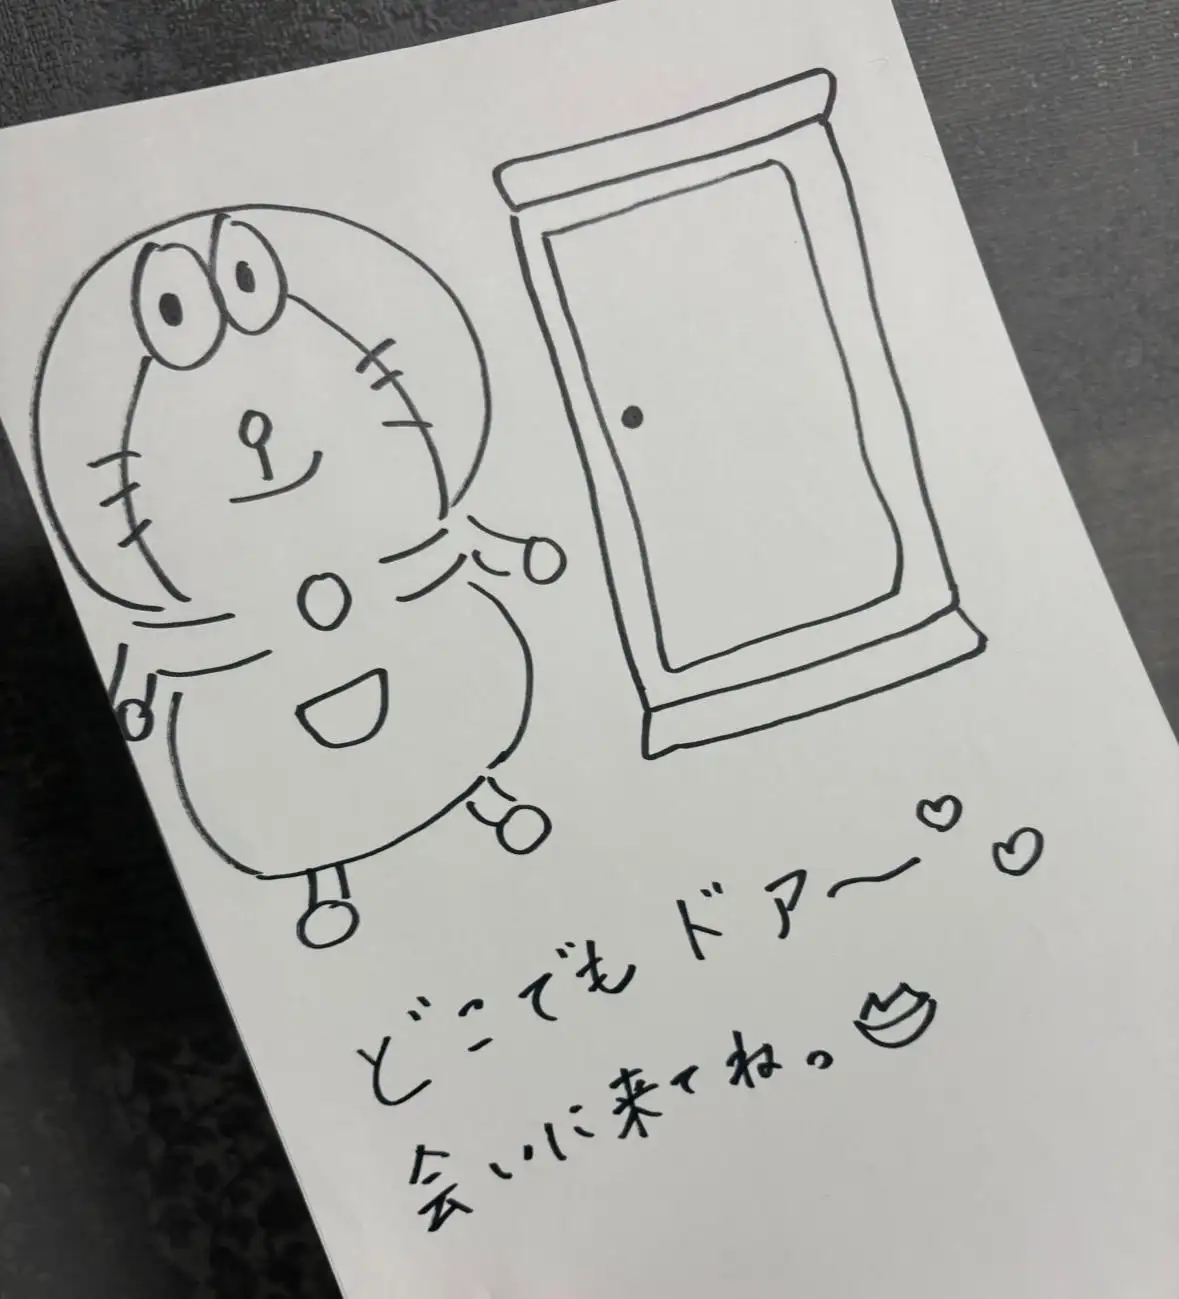 どこでもドア〜♡♡
会いに来てね。